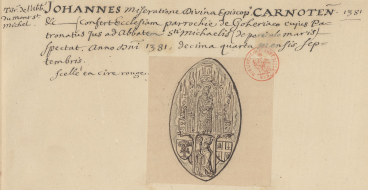 Titr. de l'abb. du mont St. michel
JOHANNES Miseratione Divina Episcopus CARNOTEN. 1381
&c — Confert Ecclesiam parrochie de Goheriaca cujus Pa-
tronatus Jus ad Abbatem Sti michaelis de periculo maris
spectat, Anno Dni 1381. decima quarta mensis sep-
tembris.
scellé en cire rouge,